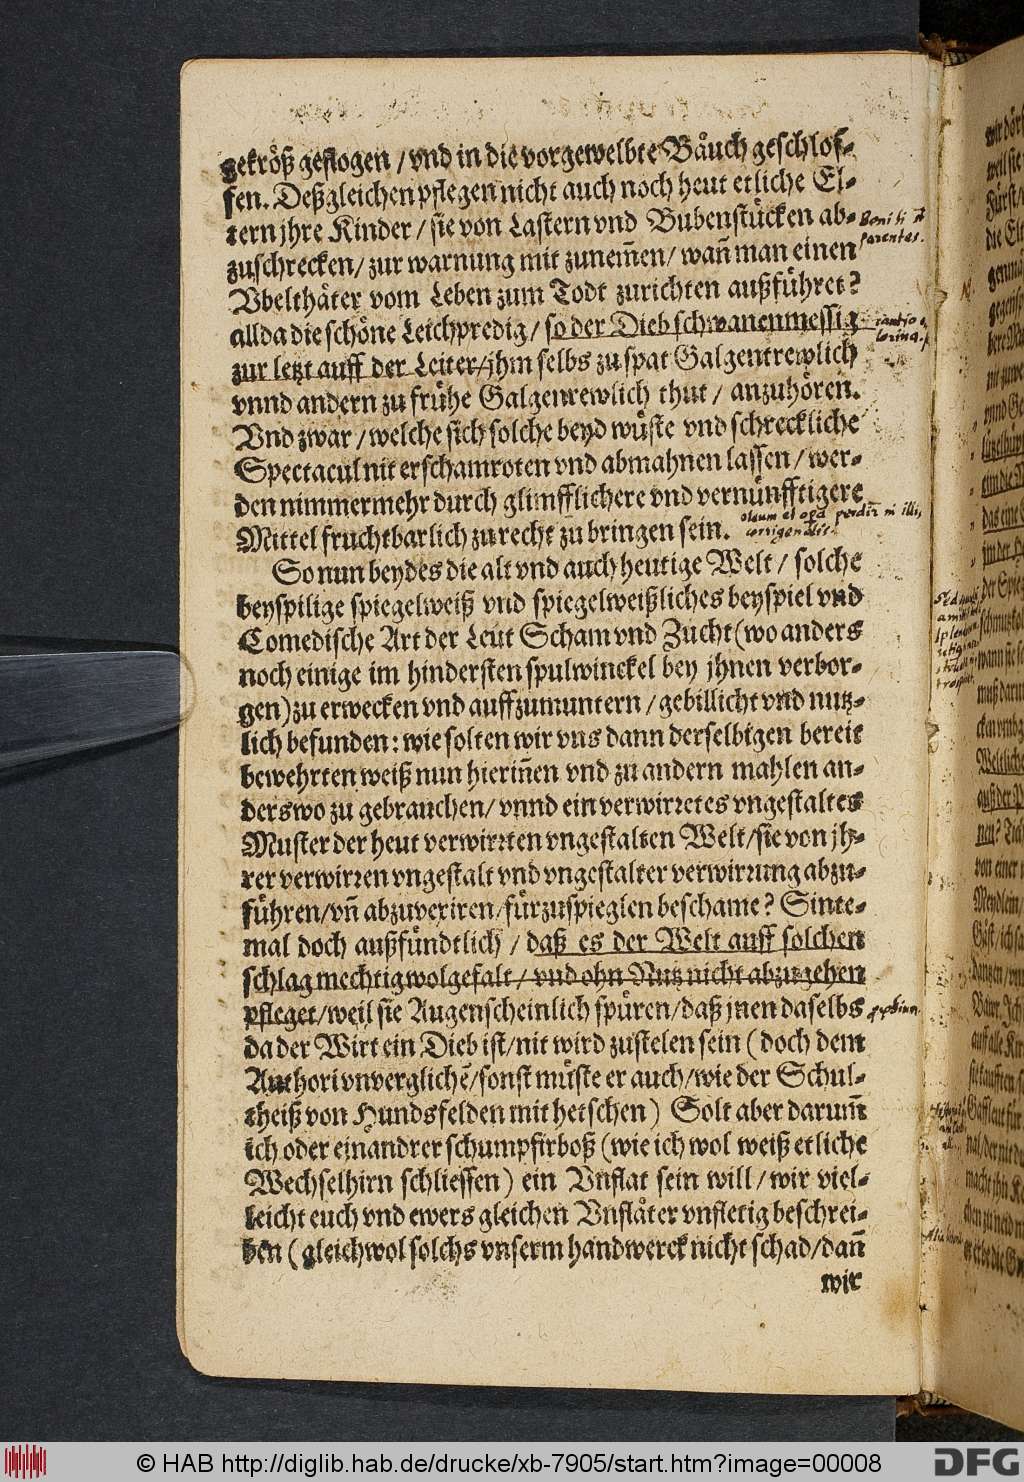 gekröß geflogen / vnd in die vorgewelbte Bäuch geschlof-
fen. Deßgleichen pflegen nicht auch noch heut etliche El-
tern jhre Kinder / sie von Lastern vnd Bubenstücken ab-
zuschrecken / zur warnung mit zunem̃en / wañ man einen
Vbelthäter vom Leben zum Todt zurichten außführet?
allda die schöne Leichpredig / so der Dieb schwanenmessig
zur letzt auff der Leiter / jhm selbs zu spat Galgentrewlich
vnnd andern zu frühe Galgenrewlich thut / anzuhören.
Vnd zwar / welche sich solche beyd wüste vnd schreckliche
Spectacul nit erschamroten vnd abmahnen lassen / wer-
den nimmermehr durch glimfflichere vnd vernünfftigere
Mittel fruchtbarlich zu recht zu bringen sein.
So nun beydes die alt vnd auch heutige Welt / solche
beyspilige spiegelweiß vnd spiegelweißliches beyspiel vnd
Comedische Art der Leut Scham vnd Zucht (wo anders
noch einige im hindersten spulwinckel bey jhnen verbor-
gen) zu erwecken vnd auffzumuntern / gebillicht vnd nutz-
lich befunden: wie solten wir vns dann derselbigen bereit
bewehrten weiß nun hieriñen vnd zu andern mahlen an-
derswo zu gebrauchen / vnnd ein verwirretes vngestaltes
Muster der heut verwirrten vngestalten Welt / sie von jh-
rer verwirren vngestalt vnd vngestalter verwirrung abzu-
führen / vñ abzuvexiren / fürzuspieglen beschame? Sinte-
mal doch außfündtlich / daß es der Welt auff solchen
schlag mechtig wolgefalt / vnd ohn Nutz nicht abzugehen
pfleget / weil sie Augenscheinlich spüren / daß jnen daselbs
da der Wirt ein Dieb ist / nit wird zustelen sein (doch dem
Authori vnvergliche͂ / sonst müste er auch / wie der Schul-
theiß von Hundsfelden mit hetschen) Solt aber darum̃
ich oder ein andrer schumpfirboß (wie ich wol weiß etliche
Wechselhirn schliessen) ein Vnflat sein will / wir viel-
leicht euch vnd ewers gleichen Vnfläter vnfletig beschrei-
ben (gleichwol solchs vnserm handwerck nicht schad / dañ
wir
© HAB http://diglib.hab.de/drucke/xb-7905/start.htm?image=00008
DFG